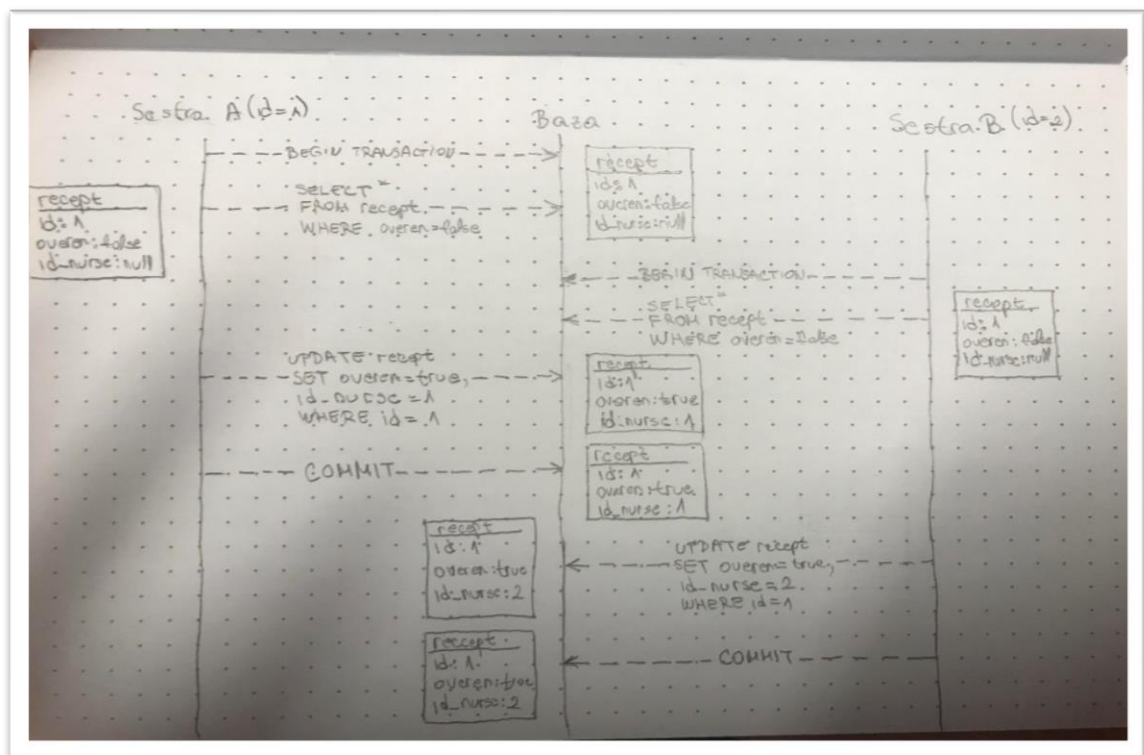 Sestra A (id=1)
Baza
Sestra B (id=2)
BEGIN TRANSACTION
recept
id: 1
overen:false
id_nurse:null
SELECT *
FROM recept
WHERE overen=false
recept
id: 1
overen:false
id_nurse:null
BEGIN TRANSACTION
SELECT *
FROM recept
WHERE overen=false
recept
id: 1
overen:false
id_nurse:null
UPDATE recept
SET overen=true,
id_nurse=1
WHERE id=1
recept
id:1
overen:true
id_nurse:1
COMMIT
recept
id:1
overen:true
id_nurse:1
recept
id:1
overen:true
id_nurse:2
UPDATE recept
SET overen=true,
id_nurse=2
WHERE id=1
reccept
id:1
overen:true
id_nurse:2
COMMIT